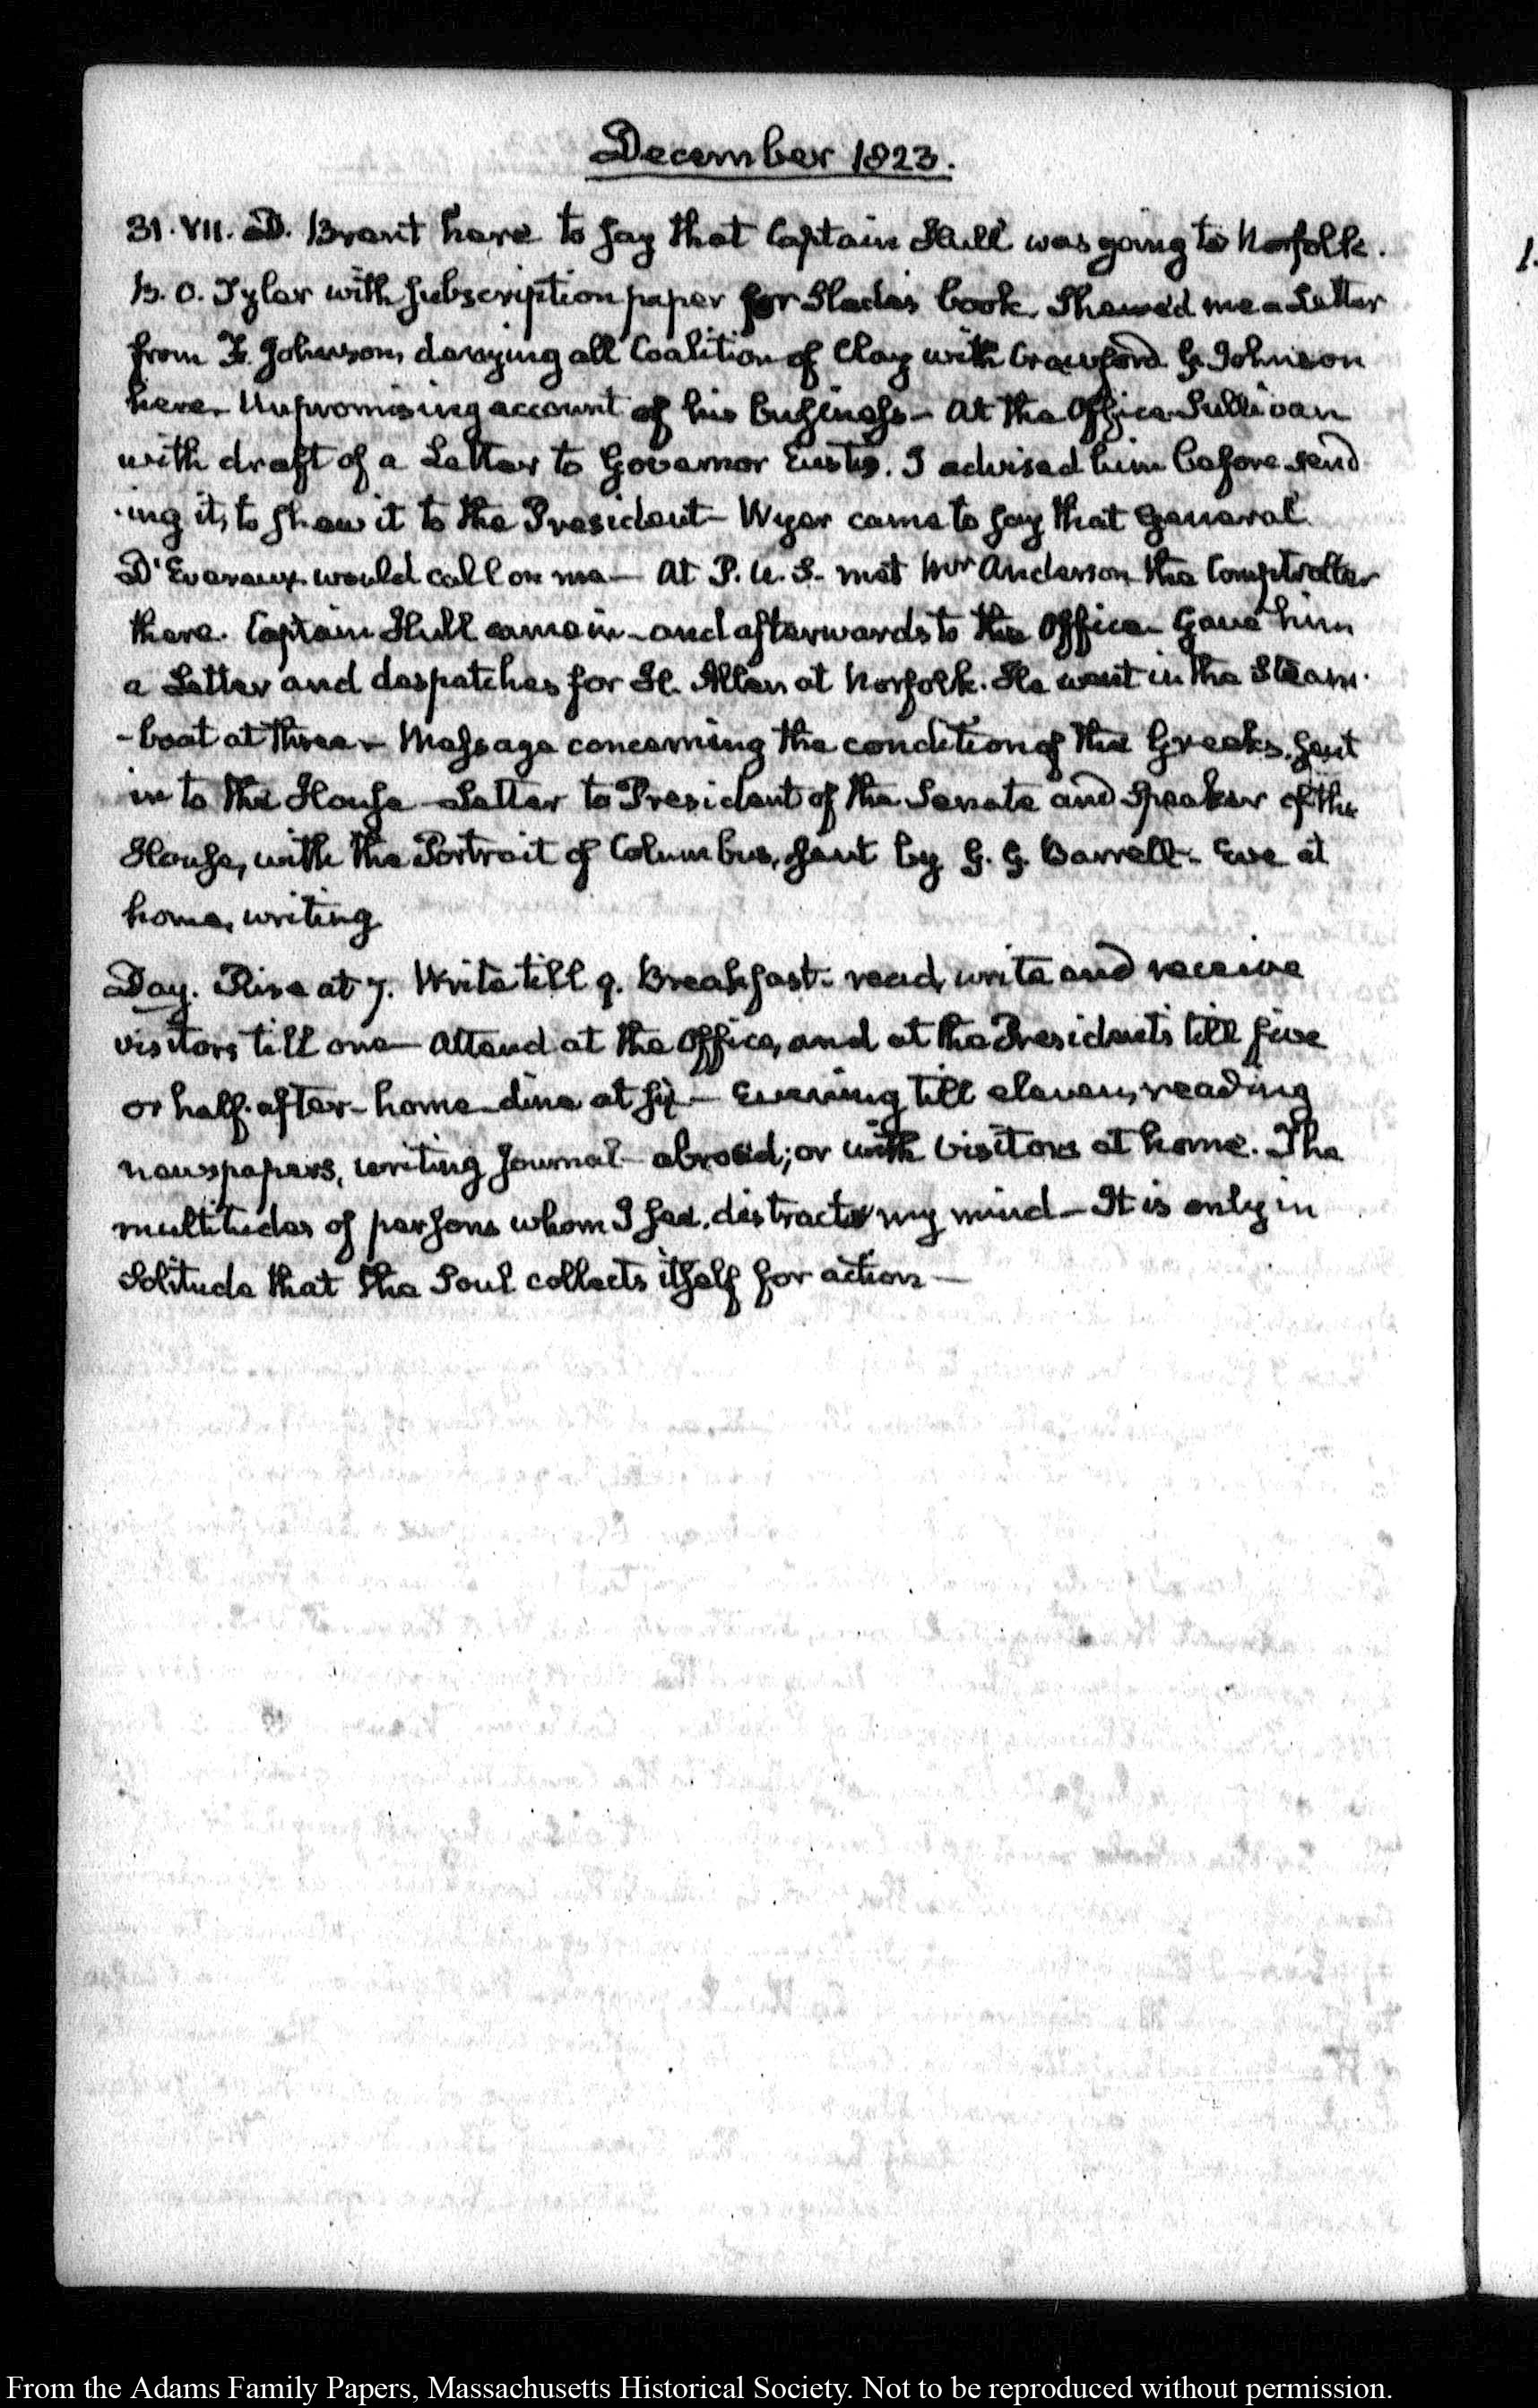 December 1823.
31. VII. D. Brent here to say that Captain Hull was going to Norfolk.
B. O. Tyler with subscription paper for Slade's book. Shewed me a Letter
from F. Johnson, denying all Coalition of Clay with Crawford. G. Johnson
here. Unpromising account of his business— At the Office. Sullivan
with draft of a Letter to Governor Eustis. I advised him before send
-ing it, to shew it to the President— Wyer came to say that General
D'Evereux would call on me— At P. U. S. met Mr Anderson the Comptroller
there. Captain Hull came in—and afterwards to the Office— Gave him
a Letter and despatches for H. Allen at Norfolk. He went in the Steam-
-boat at three— Message concerning the condition of the Greeks, sent
in to the House—Letter to President of the Senate and Speaker of the
House, with the Portrait of Columbus, sent by G. G. Barrell— Eve at
home, writing
Day. Rise at 7. Write till 9. Breakfast— read, write and receive
visitors till one— Attend at the Office, and at the President's till five
or half-after— home—dine at six— Evening till eleven, reading
newspapers, writing journal— abroad; or with visitors at home. The
multitudes of persons whom I see, distracts my mind— It is only in
Solitude that the Soul collects itself for action—
1.
From the Adams Family Papers, Massachusetts Historical Society. Not to be reproduced without permission.